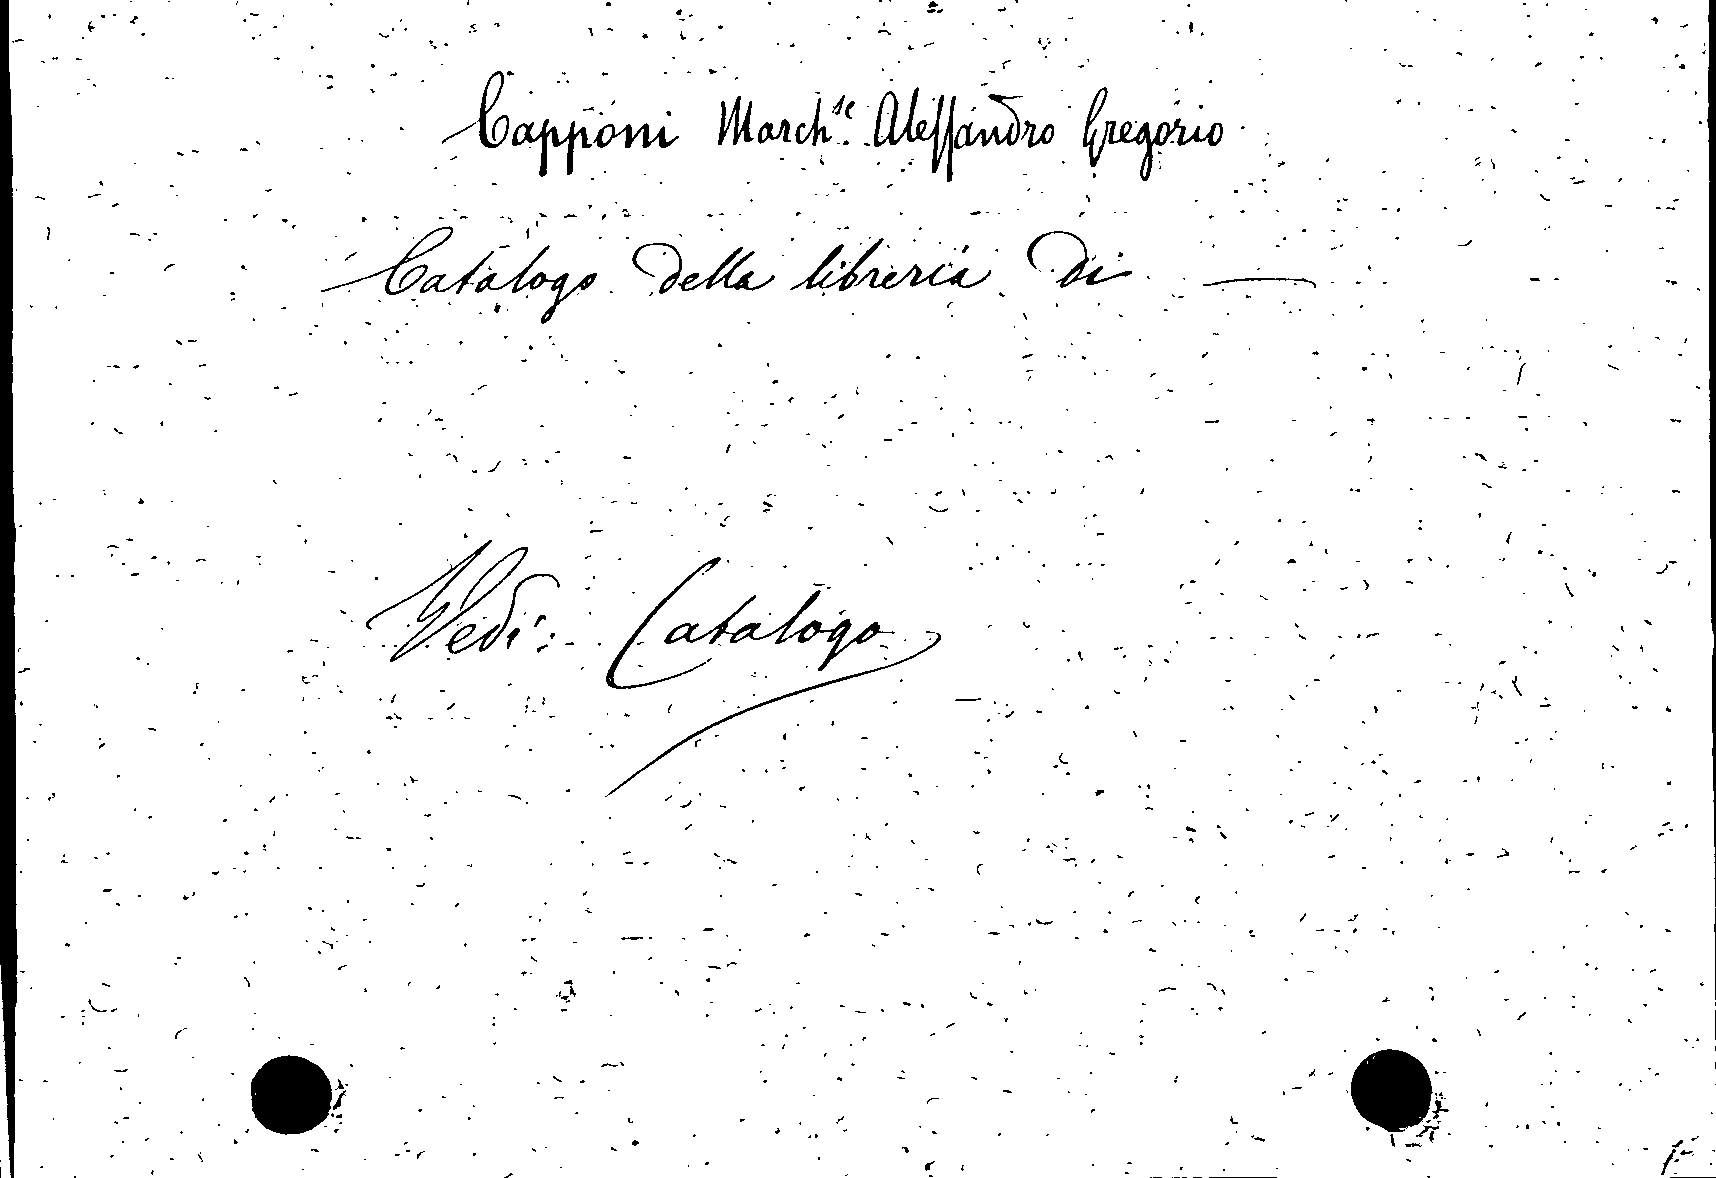 Capponi March.se Alessandro Gregorio
Catalogo della libreria di ——
Vedi: Catalogo